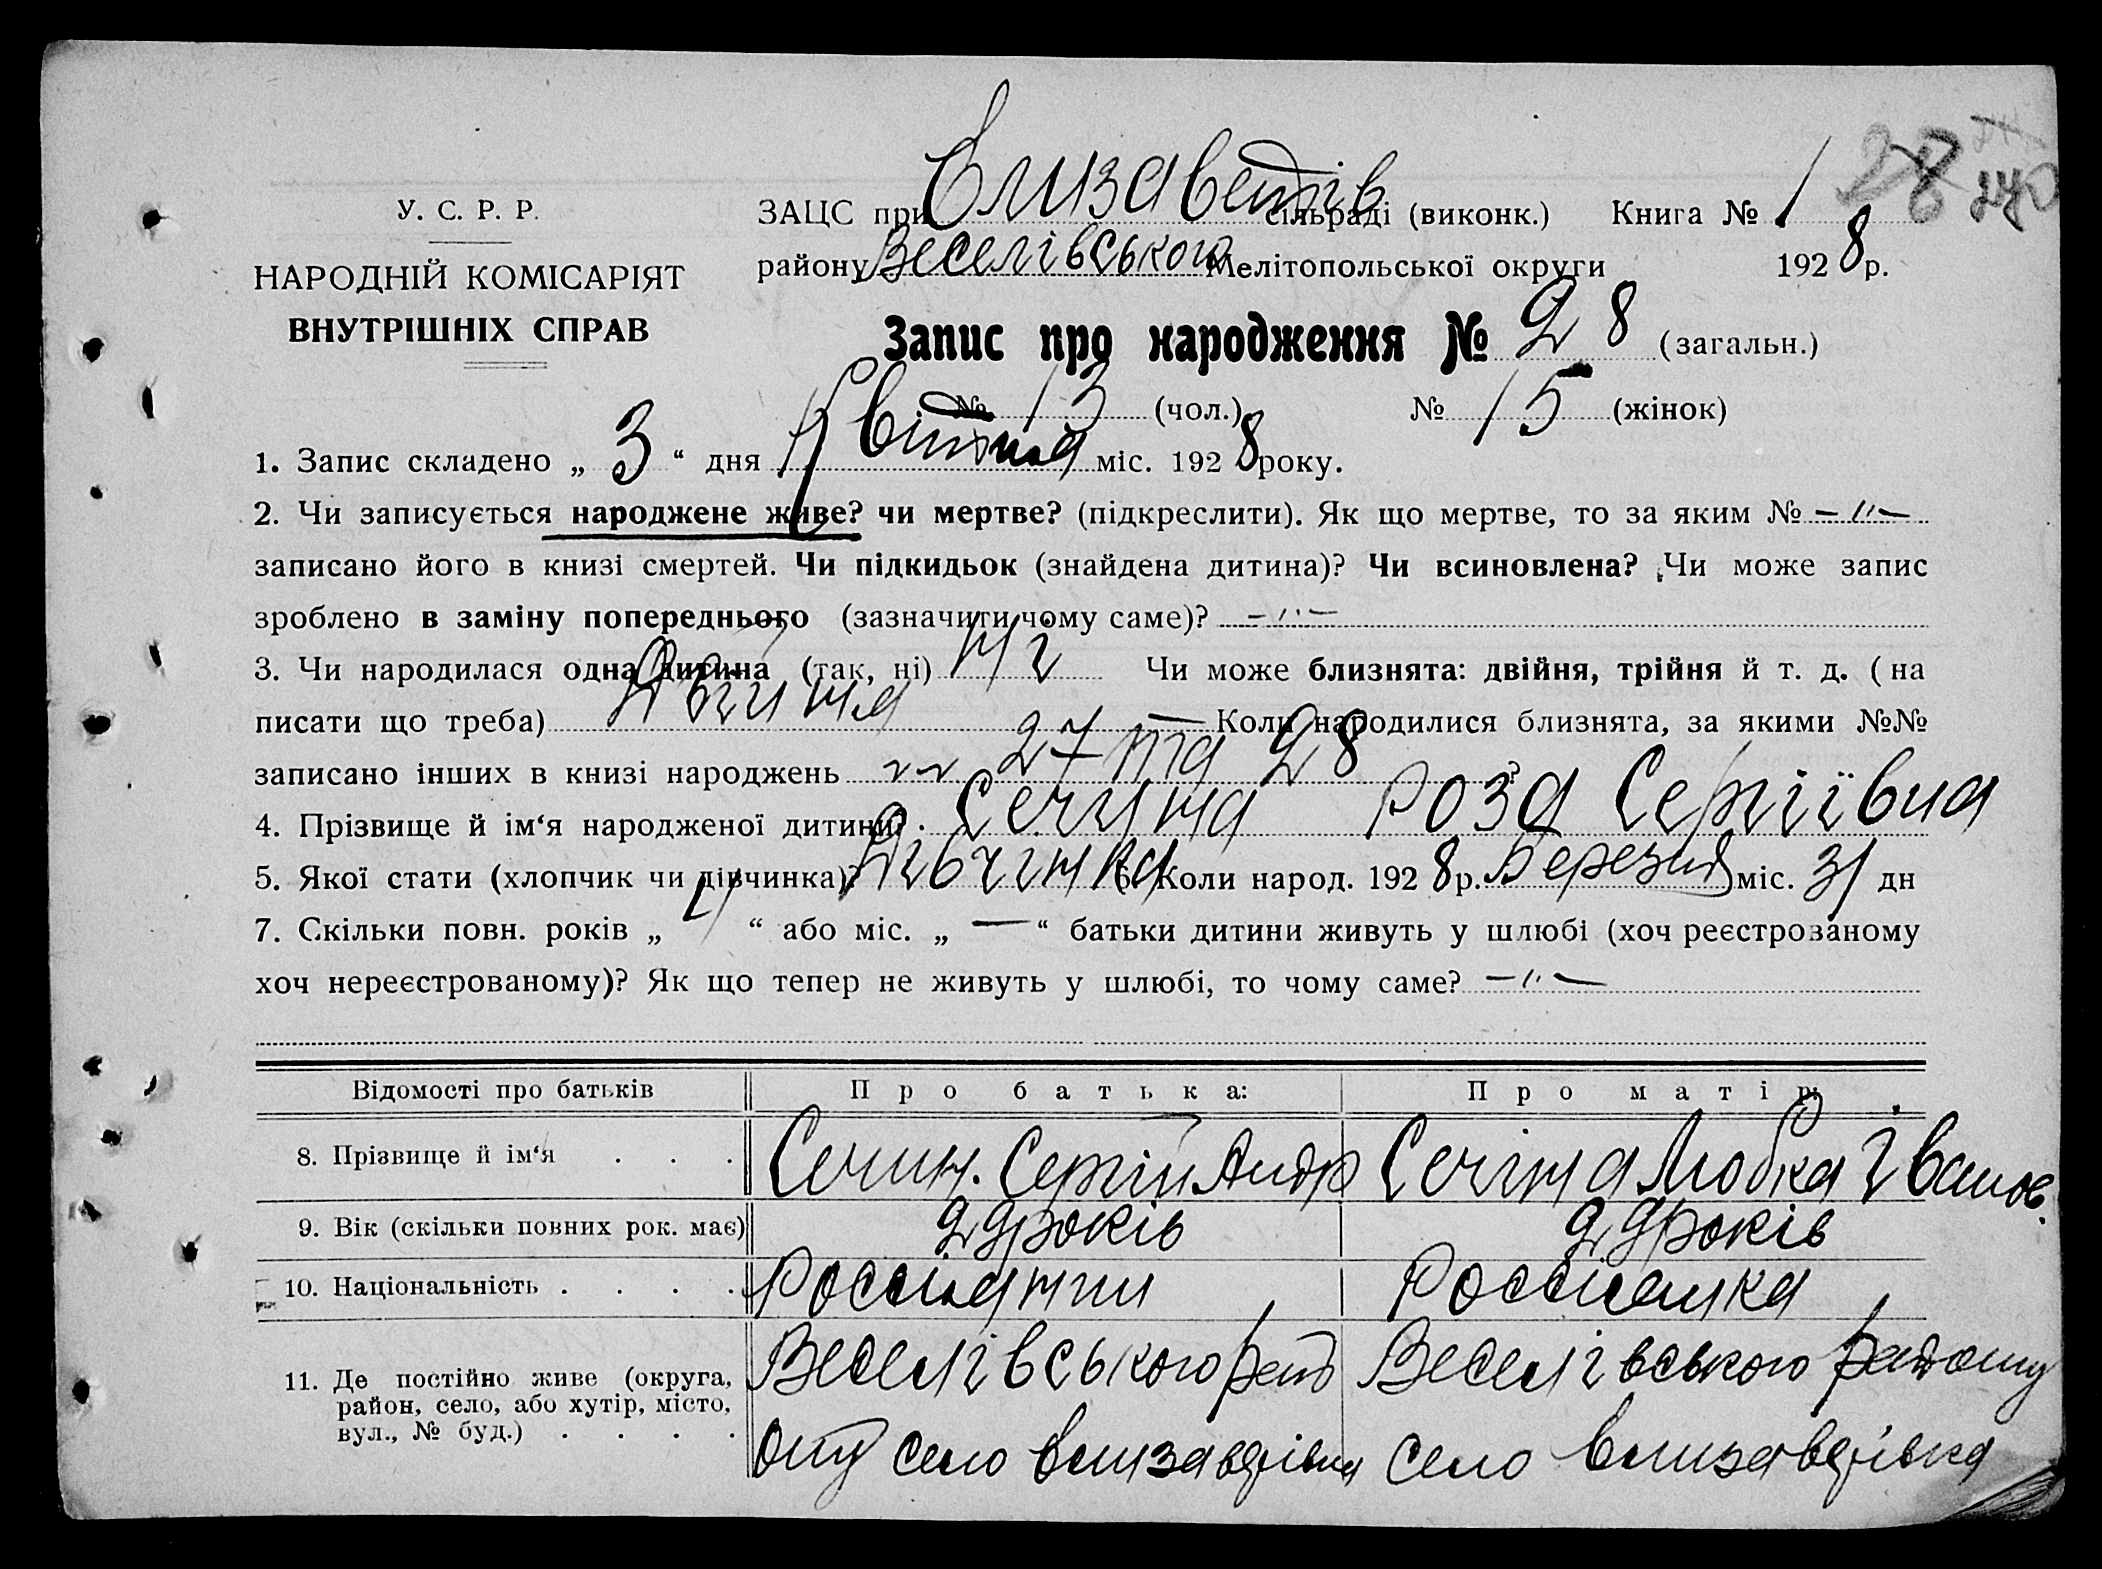 28
У. С. Р. Р.
НАРОДНІЙ КОМІСАРІЯТ
ВНУТРІШНІХ СПРАВ
ЗАЦС при Єлизаветів сільраді (виконк.) Книга № 1
району Веселівського Мелітопольської округи 1928 р.
Запис про народження № 28 (загальн.)
№ 13 (чол.) № 15 (жінок)
1. Запис складено „ 3 “ дня Квітня міс. 1928 року.
2. Чи записується народжене живе? чи мертве? (підкреслити). Як що мертве, то за яким № –"–
записано його в книзі смертей. Чи підкидьок (знайдена дитина)? Чи всиновлена? Чи може запис
зроблено в заміну попереднього (зазначити чому саме)? –"–
3. Чи народилася одна дитина (так, ні) Ні Чи може близнята: двійня, трійня й т. д. (на
писати що треба) Двійня Коли народилися близнята, за якими №№
записано інших в книзі народжень 27 та 28 ?
4. Прізвище й ім‘я народженої дитини? Сечина Роза Сергіївна
5. Якої стати (хлопчик чи дівчинка)? Дівчинка 6. Коли народ. 1928 р. Березня міс. 31 дн
7. Скільки повн. років „ 4 “ або міс. „ — “ батьки дитини живуть у шлюбі (хоч реєстрованому
хоч нереєстрованому)? Як що тепер не живуть у шлюбі, то чому саме? –"–
Відомості про батьків Про батька: Про матір:
8. Прізвище й ім‘я . . . Сечин. Сергій Андр Сечіна Любка Іванов.
9. Вік (скільки повних рок. має) років років
10. Національність . . . . Россиянин Россиянка
11. Де постійно живе (округа,
район, село, або хутір, місто,
вул., № буд.) . . . .
Веселівського рай Веселівського району
ону село Єлизаведівка село Єлизаведівка